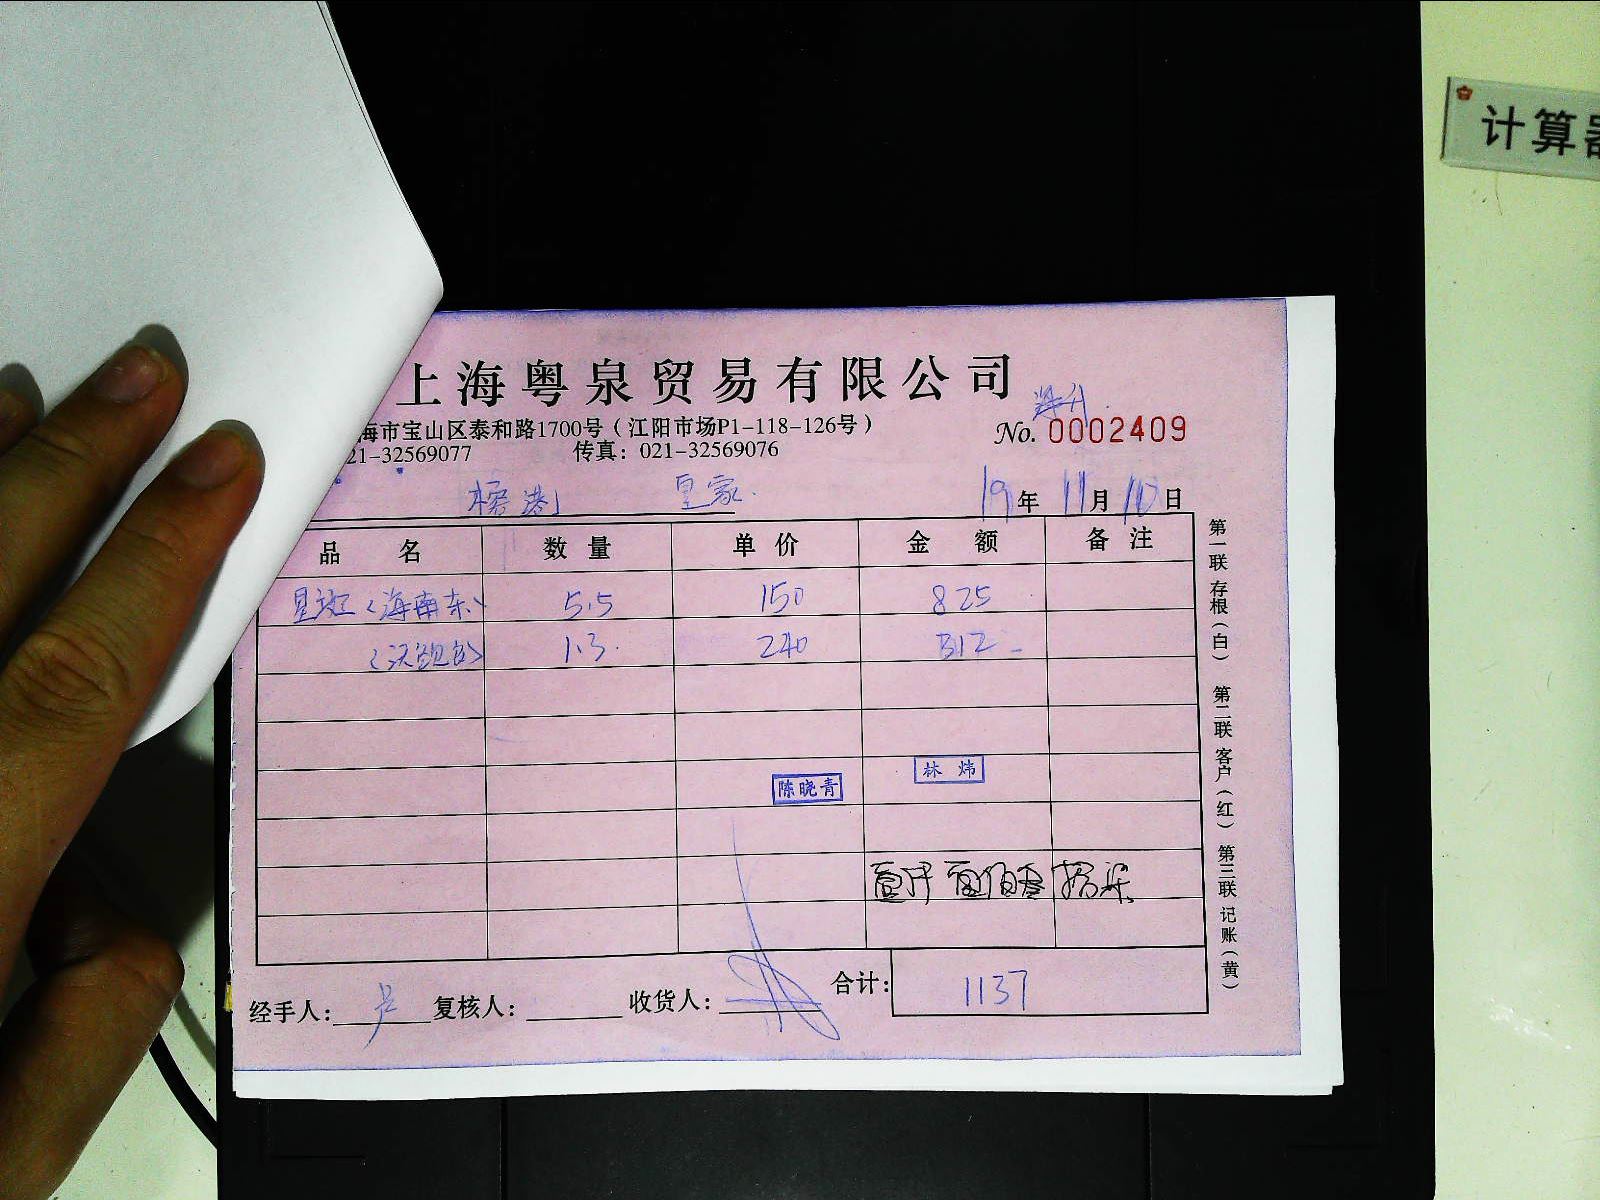 计算器
上海粤泉贸易有限公司
海升
海市宝山区泰和路1700号（江阳市场P1-118-126号）
No. 0002409
21-32569077 传真：021-32569076
榕港 皇家
19年 11月 10日
品 名 数 量 单 价 金 额 备 注
星斑（海南东） 5.5 150 825
1.3 240 312
陈晓青 林 炜
壹仟壹佰叁拾柒
经手人： 复核人： 收货人： 合计： 1137
第一联 存根（白） 第二联 客户（红） 第三联 记账（黄）